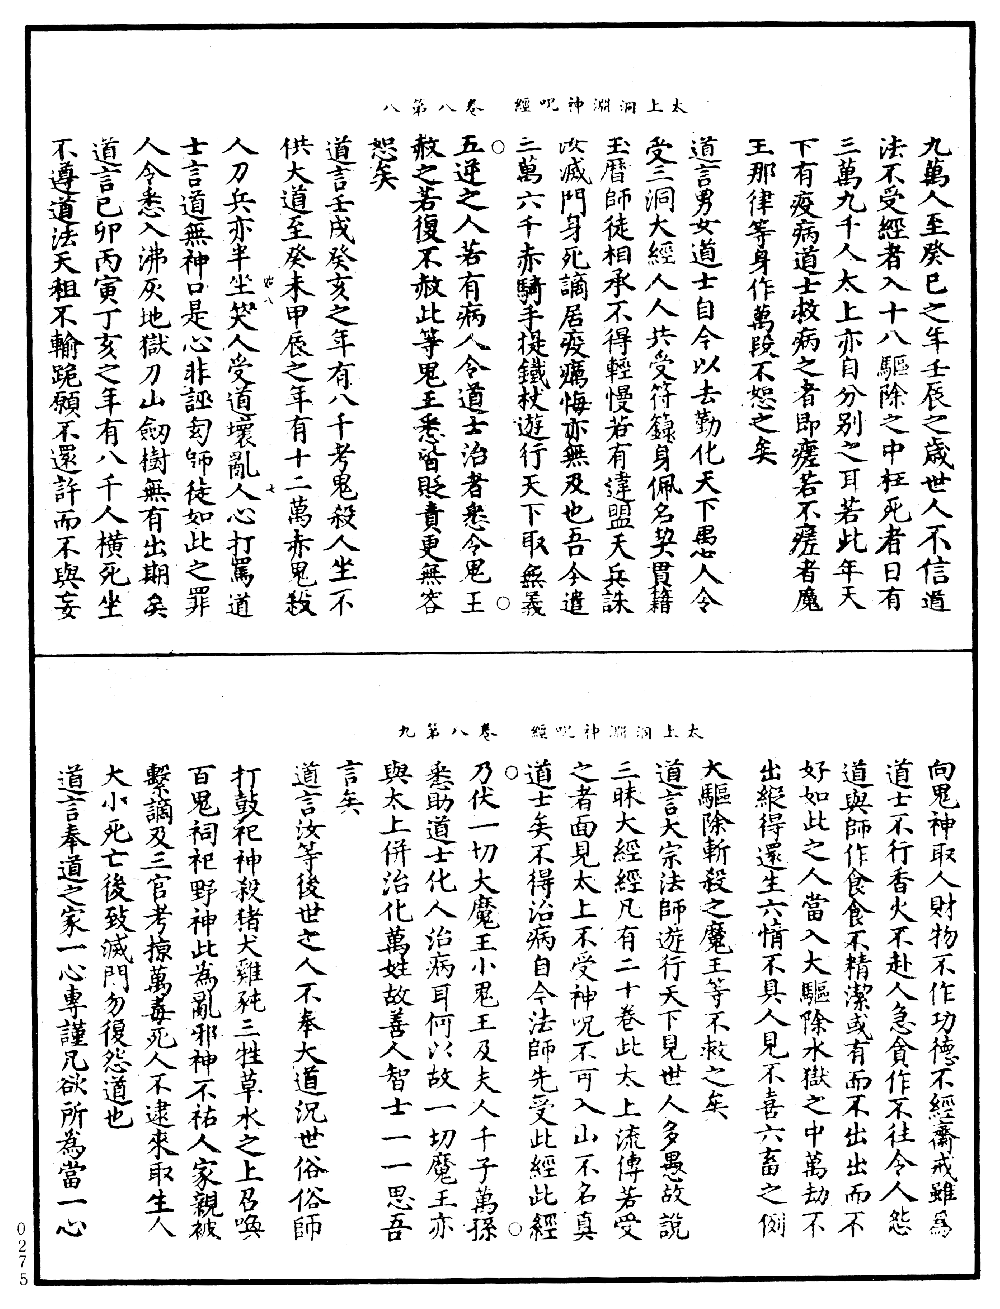 太上洞淵神呪經　卷八第八
九萬人至癸巳之年壬辰之歲世人不信道
法不受經者入十八驅除之中枉死者日有
三萬九千人太上亦自分别之耳若此年天
下有疫病道士救病之者即瘥若不瘥者魔
王那律等身作萬段不恕之矣
道言男女道士自今以去勤化天下愚人令
受三洞大經人人共受符籙身佩名契貫籍
玉曆師徒相承不得輕慢若有違盟天兵誅
汝滅門身死謫居疫癘悔亦無及也吾今遣
三萬六千赤騎手捉鐵杖遊行天下取無義
五逆之人若有病人令道士治者悉令鬼王
赦之若復不赦此等鬼王悉皆貶責更無容
恕矣
道言壬戌癸亥之年有八千考鬼殺人坐不
供大道至癸未甲辰之年有十二萬赤鬼殺
人刀兵亦半坐笑人受道壞亂人心打罵道
士言道無神口是心非誣訇師徒如此之罪
人令悉入沸灰地獄刀山劒樹無有出期矣
道言已卯丙寅丁亥之年有八千人橫死坐
不遵道法天租不輸跪願不還許而不與妄
太上洞淵神呪經　卷八第九
向鬼神取人財物不作功德不經齋戒雖爲
道士不行香火不赴人急貪作不往令人怨
道與師作食食不精潔或有而不出出而不
好如此之人當入大驅除水獄之中萬劫不
出縱得還生六情不具人見不喜六畜之例
大驅除斬殺之魔王等不救之矣
道言大宗法師遊行天下見世人多愚故說
三昧大經經凡有二十卷此太上流傳若受
之者面見太上不受神呪不可入山不名真
道士矣不得治病自今法師先受此經此經
乃伏一切大魔王小鬼王及夫人千子萬孫
悉助道士化人治病耳何以故一切魔王亦
與太上併治化萬姓故善人智士一一思吾
言矣
道言汝等後世之人不奉大道況世俗俗師
打鼓祀神殺猪犬雞㹠三牲草水之上召喚
百鬼祠祀野神此為亂邪神不祐人家親被
繫謫及三官考掠萬毒死人不逮來取生人
大小死亡後致滅門勿復怨道也
道言奉道之家一心專謹凡欲所爲當一心
0275